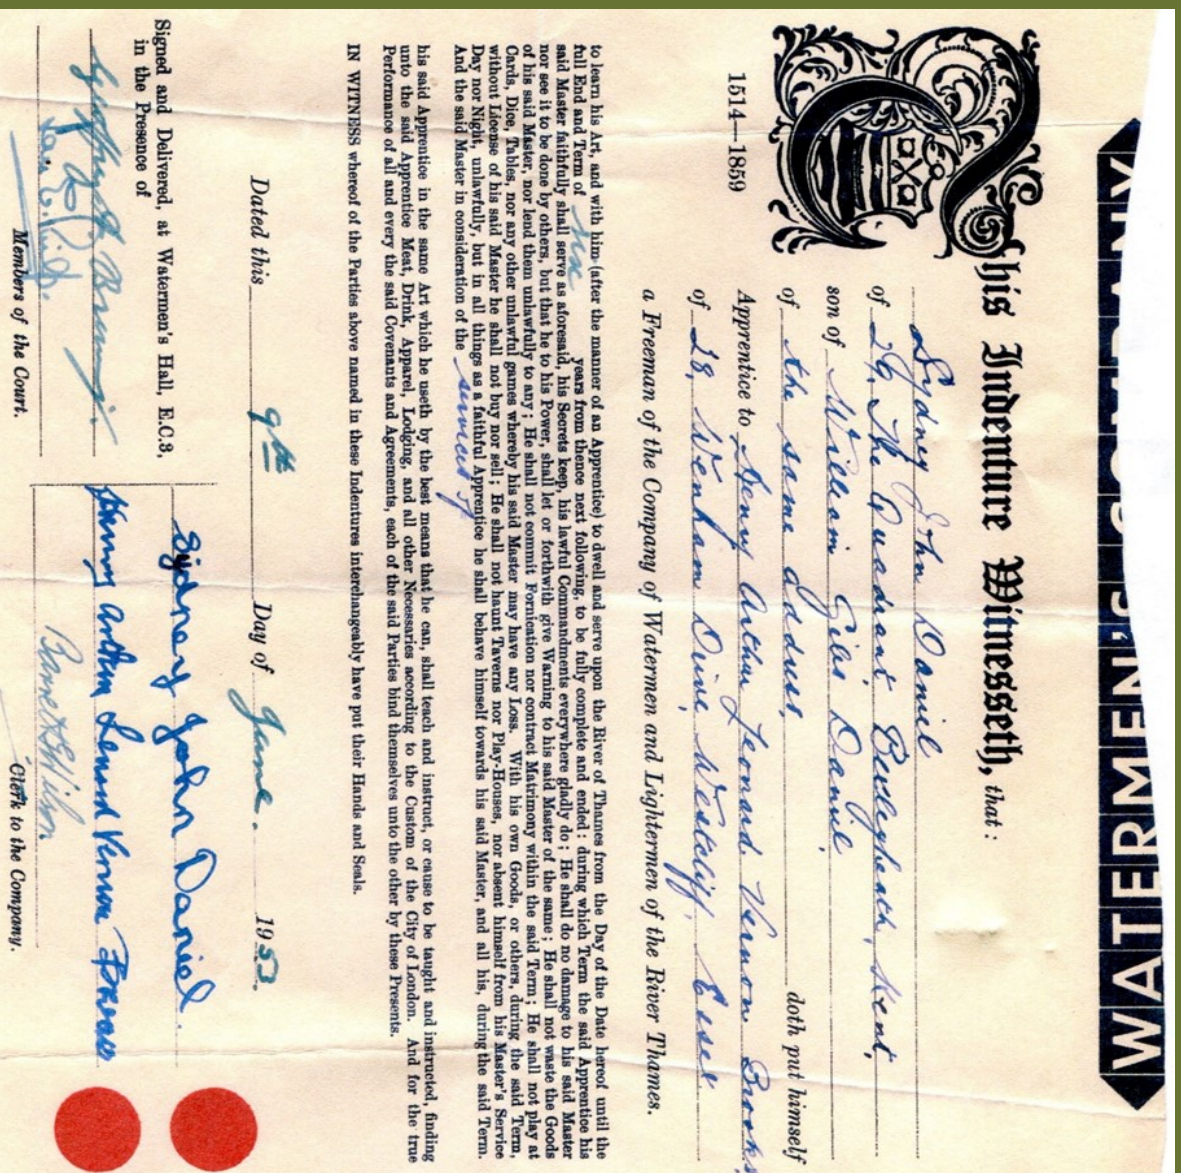 WATERMEN'S COMPANY
This Indenture Witnesseth, that:
Sydney John Daniel
of 29, The Quadrant Bexleyheath, Kent,
son of William Giles Daniel,
of the same address, doth put himself
1514—1859
Apprentice to Henry Arthur Leonard Vernon Brooks
of 28, Wenham Drive, Westcliff, Essex
a Freeman of the Company of Watermen and Lightermen of the River Thames.
to learn his Art, and with him (after the manner of an Apprentice) to dwell and serve upon the River of Thames from the Day of the Date hereof until the
full End and Term of six years from thence next following, to be fully complete and ended; during which Term the said Apprentice his
said Master faithfully shall serve as aforesaid, his Secrets keep, his lawful Commandments everywhere gladly do; He shall do no damage to his said Master
nor see it to be done by others, but that he to his Power, shall let or forthwith give Warning to his said Master of the same; He shall not waste the Goods
of his said Master, nor lend them unlawfully to any; He shall not commit Fornication nor contract Matrimony within the said Term; He shall not play at
Cards, Dice, Tables, nor any other unlawful games whereby his said Master may have any Loss. With his own Goods, or others, during the said Term,
without License of his said Master he shall not buy nor sell; He shall not haunt Taverns nor Play-Houses, nor absent himself from his Master's Service
Day nor Night, unlawfully, but in all things as a faithful Apprentice he shall behave himself towards his said Master, and all his, during the said Term.
And the said Master in consideration of the services of
his said Apprentice in the same Art which he useth by the best means that he can, shall teach and instruct, or cause to be taught and instructed, finding
unto the said Apprentice Meat, Drink, Apparel, Lodging, and all other Necessaries according to the Custom of the City of London. And for the true
Performance of all and every the said Covenants and Agreements, each of the said Parties bind themselves unto the other by these Presents.
IN WITNESS whereof of the Parties above named in these Indentures interchangeably have put their Hands and Seals.
Dated this 9th Day of June. 1953.
Signed and Delivered, at Watermen's Hall, E.C.3,
in the Presence of
Sydney John Daniel.
Henry Arthur Leonard Vernon
Members of the Court.
Clerk to the Company.